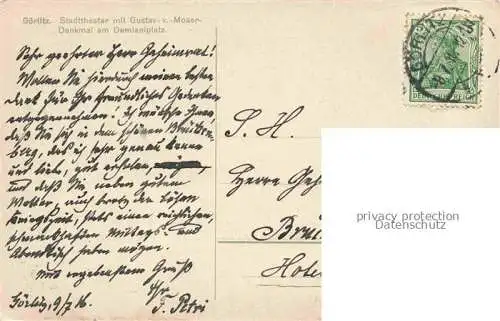 Görlitz. Stadttheater mit Gustav-v.-Moser-
Denkmal am Demianiplatz.
Sehr geehrter Herr Geheimrat!
Wollen Sie hierdurch meinen besten
Dank für Ihr freundliches Gedenken
entgegennehmen. Ich wünsche Ihnen,
daß Sie sich in dem schönen
berg, das ich sehr genau kenne
und liebe, gut erholen,
und daß Sie neben gutem
Wetter, auch trotz der bösen
Kriegszeit, stets einen reichlichen,
schmackhaften Mittags- und
Abendtisch haben mögen.
Mit ergebenstem Gruß
Ihr
F. Petri
Görlitz, 9/7 16
S. H.
Herrn Geh
Hotel
privacy protection
Datenschutz